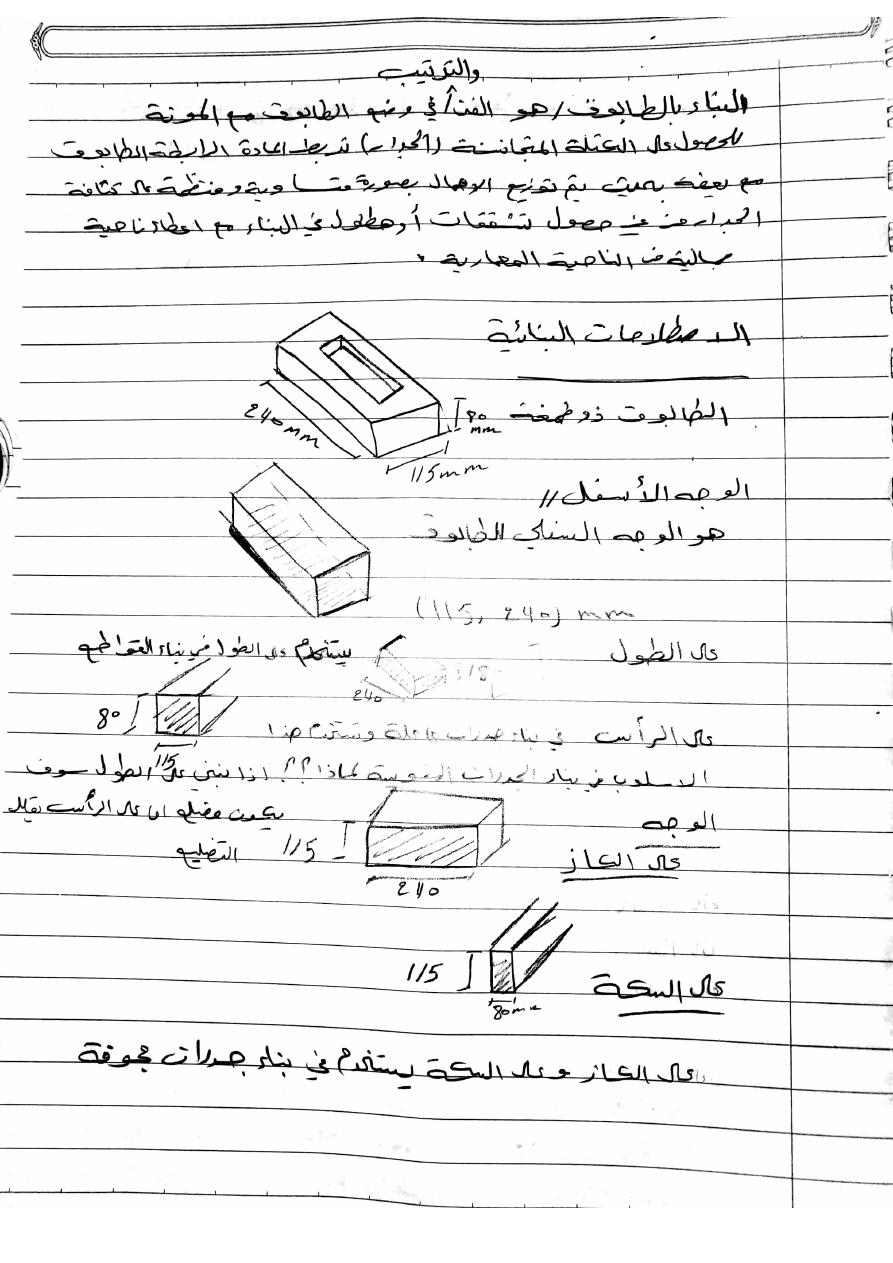 والترتيب
البناء بالطابوق / هو الفن في وضع الطابوق مع المونة
للحصول على الكتلة المتجانسة (الجدار) تربط المادة الرابطة الطابوق
مع بعضه بحيث يتم توزيع الاحمال بصورة متساوية ومنتظمة على كثافة
الجدار من غير حصول تشققات أو هطول في البناء مع اعطاء ناحية
جمالية من الناحية المعمارية .
الاصطلاحات البنائية
الطابوق ذو طمغة
80 mm
240 mm
115 mm
الوجه الأسفل //
هو الوجه السفلي للطابوق
(115, 240) mm
على الطول
يستخدم على الطول في بناء القواطع
115
240
80
115
على الرأس في بناء جدران وتستخدم هذا
الاسلوب في بناء الجدران المقوسة لماذا؟؟ اذا نبني على الطول سوف
يكون مضلع اما على الرأس يقلل
التضليع
الوجه
على الكاز
115
240
على السكة
115
80mm
على الكاز وعلى السكة يستخدم في بناء جدران مجوفة